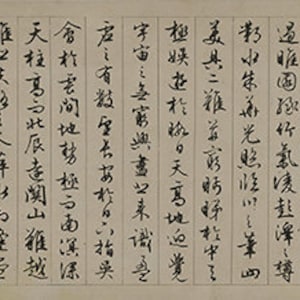 遏睢園綠竹氣凌彭澤之樽
鄴水朱華光照臨川之筆四
美具二難并窮睇眄於中天
極娛遊於暇日天高地迥覺
宇宙之無窮興盡悲來識盈
虛之有數望長安於日下指吳
會於雲間地勢極而南溟深
天柱高而北辰遠關山難越
誰悲失路之人萍水相逢盡